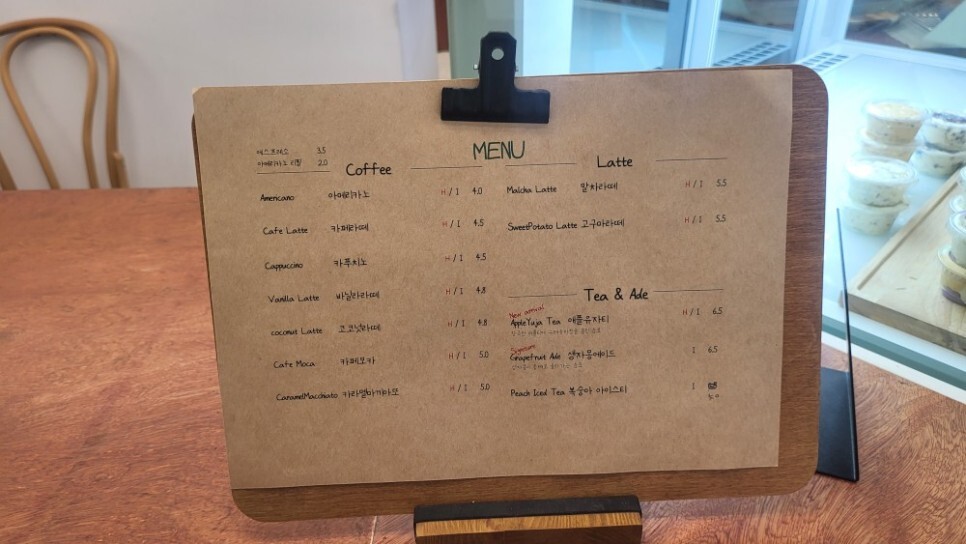 MENU
에스프레소 3.5
아메리카노 리필 2.0
Coffee
Americano 아메리카노 H / I 4.0
Cafe Latte 카페라떼 H / I 4.5
Cappuccino 카푸치노 H / I 4.5
Vanilla Latte 바닐라라떼 H / I 4.8
coconut Latte 코코넛라떼 H / I 4.8
Cafe Moca 카페모카 H / I 5.0
CaramelMacchiato 카라멜마끼아또 H / I 5.0
Latte
Malcha Latte 말차라떼 H / I 5.5
SweetPotato Latte 고구마라떼 H / I 5.5
Tea & Ade
New arrival
AppleYuja Tea 애플유자티 H / I 6.5
Grapefruit Ade 생자몽에이드 I 6.5
Peach Iced Tea 복숭아 아이스티 I